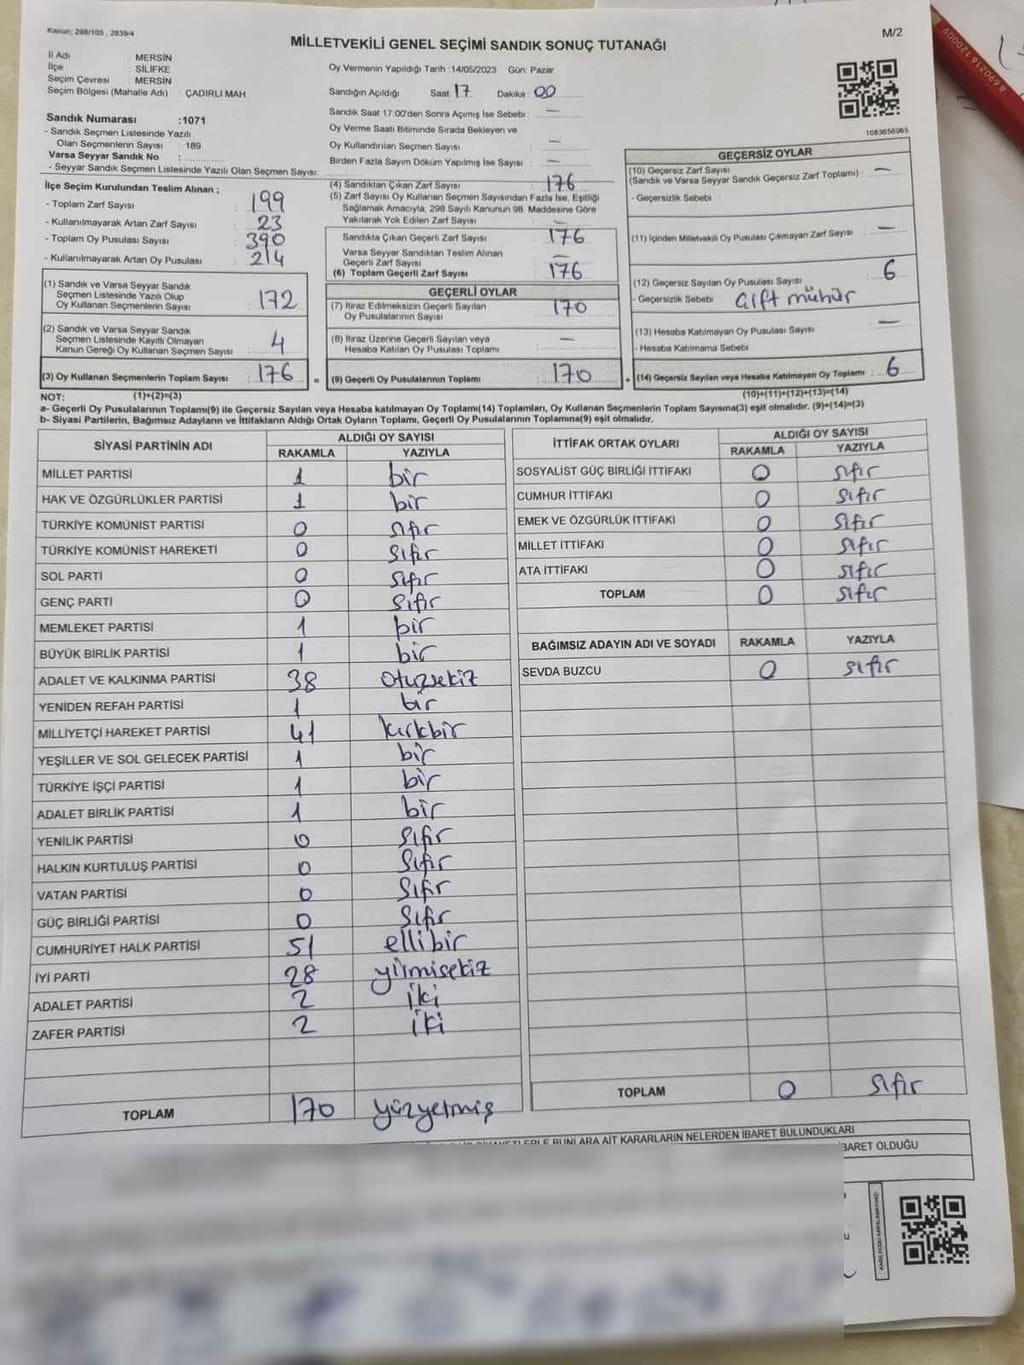 Kanun: 298/105, 2839/4
MİLLETVEKİLİ GENEL SEÇİMİ SANDIK SONUÇ TUTANAĞI
M/2
İl Adı : MERSİN
İlçe : SİLİFKE
Seçim Çevresi : MERSİN
Seçim Bölgesi (Mahalle Adı) : ÇADIRLI MAH
Oy Vermenin Yapıldığı Tarih :14/05/2023 Gün: Pazar
Sandığın Açıldığı Saat: 17 Dakika: 00
Sandık Saat 17:00'den Sonra Açımış İse Sebebi : —
Oy Verme Saati Bitiminde Sırada Bekleyen ve
Oy Kullandırılan Seçmen Sayısı : —
Birden Fazla Sayım Döküm Yapılmış İse Sayısı : —
1083656965
Sandık Numarası :1071
- Sandık Seçmen Listesinde Yazılı
Olan Seçmenlerin Sayısı : 189
Varsa Seyyar Sandık No :
- Seyyar Sandık Seçmen Listesinde Yazılı Olan Seçmen Sayısı:
İlçe Seçim Kurulundan Teslim Alınan ;
- Toplam Zarf Sayısı : 199
- Kullanılmayarak Artan Zarf Sayısı : 23
- Toplam Oy Pusulası Sayısı : 390
- Kullanılmayarak Artan Oy Pusulası : 214
(1) Sandık ve Varsa Seyyar Sandık
Seçmen Listesinde Yazılı Olup
Oy Kullanan Seçmenlerin Sayısı : 172
(2) Sandık ve Varsa Seyyar Sandık
Seçmen Listesinde Kayıtlı Olmayan
Kanun Gereği Oy Kullanan Seçmen Sayısı : 4
(3) Oy Kullanan Seçmenlerin Toplam Sayısı : 176 =
(4) Sandıktan Çıkan Zarf Sayısı : 176
(5) Zarf Sayısı Oy Kullanan Seçmen Sayısından Fazla İse, Eşitliği
Sağlamak Amacıyla, 298 Sayılı Kanunun 98. Maddesine Göre
Yakılarak Yok Edilen Zarf Sayısı : —
Sandıkta Çıkan Geçerli Zarf Sayısı : 176
Varsa Seyyar Sandıktan Teslim Alınan
Geçerli Zarf Sayısı : —
(6) Toplam Geçerli Zarf Sayısı : 176
GEÇERLİ OYLAR
(7) İtiraz Edilmeksizin Geçerli Sayılan
Oy Pusulalarının Sayısı : 170
(8) İtiraz Üzerine Geçerli Sayılan veya
Hesaba Katılan Oy Pusulası Toplamı : —
(9) Geçerli Oy Pusulalarının Toplamı : 170 +
GEÇERSİZ OYLAR
(10) Geçersiz Zarf Sayısı : —
(Sandık ve Varsa Seyyar Sandık Geçersiz Zarf Toplamı)
- Geçersizlik Sebebi :
(11) İçinden Milletvekili Oy Pusulası Çıkmayan Zarf Sayısı : —
(12) Geçersiz Sayılan Oy Pusulası Sayısı : 6
- Geçersizlik Sebebi : Çift mühür
(13) Hesaba Katılmayan Oy Pusulası Sayısı : —
- Hesaba Katılmama Sebebi :
(14) Geçersiz Sayılan veya Hesaba Katılmayan Oy Toplamı : 6
NOT: (1)+(2)=(3) (10)+(11)+(12)+(13)=(14)
a- Geçerli Oy Pusulalarının Toplamı(9) ile Geçersiz Sayılan veya Hesaba katılmayan Oy Toplamı(14) Toplamları, Oy Kullanan Seçmenlerin Toplam Sayısına(3) eşit olmalıdır. (9)+(14)=(3)
b- Siyasi Partilerin, Bağımsız Adayların ve İttifakların Aldığı Ortak Oyların Toplamı, Geçerli Oy Pusulalarının Toplamına(9) eşit olmalıdır.
SİYASİ PARTİNİN ADI ALDIĞI OY SAYISI
RAKAMLA YAZIYLA
MİLLET PARTİSİ 1 bir
HAK VE ÖZGÜRLÜKLER PARTİSİ 1 bir
TÜRKİYE KOMÜNİST PARTİSİ 0 sıfır
TÜRKİYE KOMÜNİST HAREKETİ 0 sıfır
SOL PARTİ 0 sıfır
GENÇ PARTİ 0 sıfır
MEMLEKET PARTİSİ 1 bir
BÜYÜK BİRLİK PARTİSİ 1 bir
ADALET VE KALKINMA PARTİSİ 38 otuzsekiz
YENİDEN REFAH PARTİSİ 1 bir
MİLLİYETÇİ HAREKET PARTİSİ 41 kırkbir
YEŞİLLER VE SOL GELECEK PARTİSİ 1 bir
TÜRKİYE İŞÇİ PARTİSİ 1 bir
ADALET BİRLİK PARTİSİ 1 bir
YENİLİK PARTİSİ 0 sıfır
HALKIN KURTULUŞ PARTİSİ 0 sıfır
VATAN PARTİSİ 0 sıfır
GÜÇ BİRLİĞİ PARTİSİ 0 sıfır
CUMHURİYET HALK PARTİSİ 51 ellibir
İYİ PARTİ 28 yirmisekiz
ADALET PARTİSİ 2 iki
ZAFER PARTİSİ 2 iki
TOPLAM 170 yüzyetmiş
İTTİFAK ORTAK OYLARI ALDIĞI OY SAYISI
RAKAMLA YAZIYLA
SOSYALİST GÜÇ BİRLİĞİ İTTİFAKI 0 sıfır
CUMHUR İTTİFAKI 0 sıfır
EMEK VE ÖZGÜRLÜK İTTİFAKI 0 sıfır
MİLLET İTTİFAKI 0 sıfır
ATA İTTİFAKI 0 sıfır
TOPLAM 0 sıfır
BAĞIMSIZ ADAYIN ADI VE SOYADI RAKAMLA YAZIYLA
SEVDA BUZCU 0 sıfır
TOPLAM 0 sıfır
BUNLARA AİT KARARLARIN NELERDEN İBARET BULUNDUKLARI
İBARET OLDUĞU